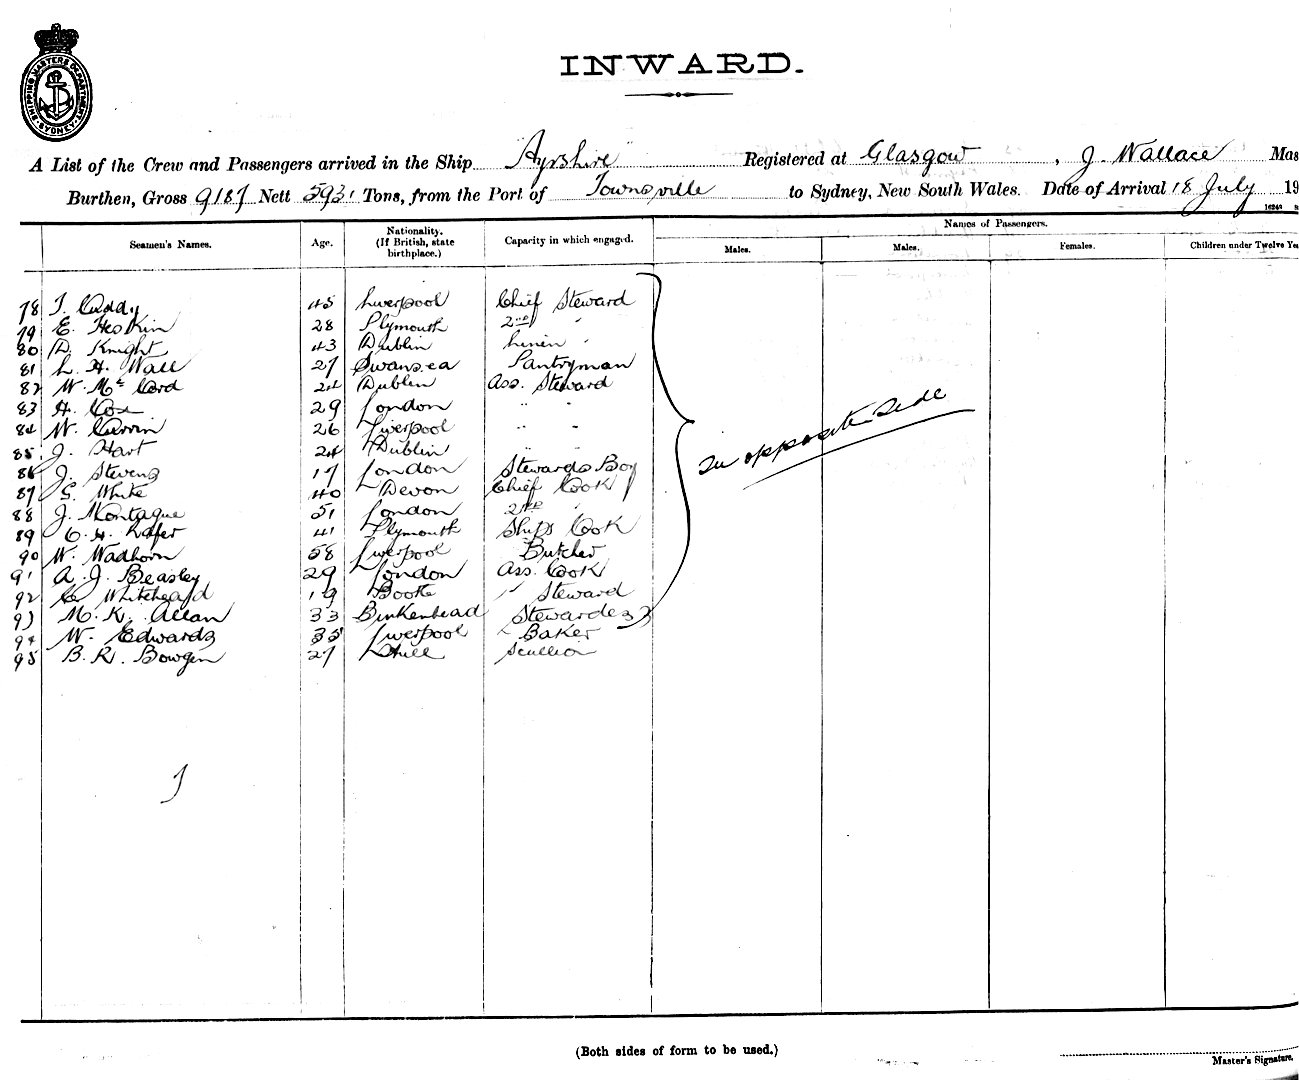 SHIPPING MASTERS DEPARTMENT. SYDNEY
INWARD.
A List of the Crew and Passengers arrived in the Ship Ayrshire Registered at Glasgow, J. Wallace Mas
Burthen, Gross 9187 Nett 5931 Tons, from the Port of Townsville to Sydney, New South Wales. Date of Arrival 18 July 19
Seamen's Names. Age. Nationality. (If British, state birthplace.) Capacity in which engaged. Names of Passengers.
Males. Males. Females. Children under Twelve Yea
78 T. Caddy 45 Liverpool Chief Steward
79 E. Heskin 28 Plymouth 2nd "
80 D. Knight 43 Dublin Linen "
81 L. H. Wall 27 Swansea Pantryman
82 W. Mc Cord 24 Dublin Ass. Steward
83 H. Cox 29 London " "
84 W. Curvin 26 Liverpool " "
85 J. Hart 24 Dublin " "
86 J. Stevens 17 London Stewards Boy
87 G. White 40 Devon Chief Cook
88 J. Montague 51 London 2nd "
89 C. H. 41 Plymouth Ships Cook
90 W. Wadhorn 58 Liverpool Butcher
91 A. J. Beasley 29 London Ass. Cook
92 C. Whitehead 19 Bootle " Steward
93 M. K. Allan 33 Birkenhead Stewardess
94 W. Edwards 35 Liverpool Baker
95 B. R. Bowgen 27 Hull Scullion
opposite side
(Both sides of form to be used.)
Master's Signature.